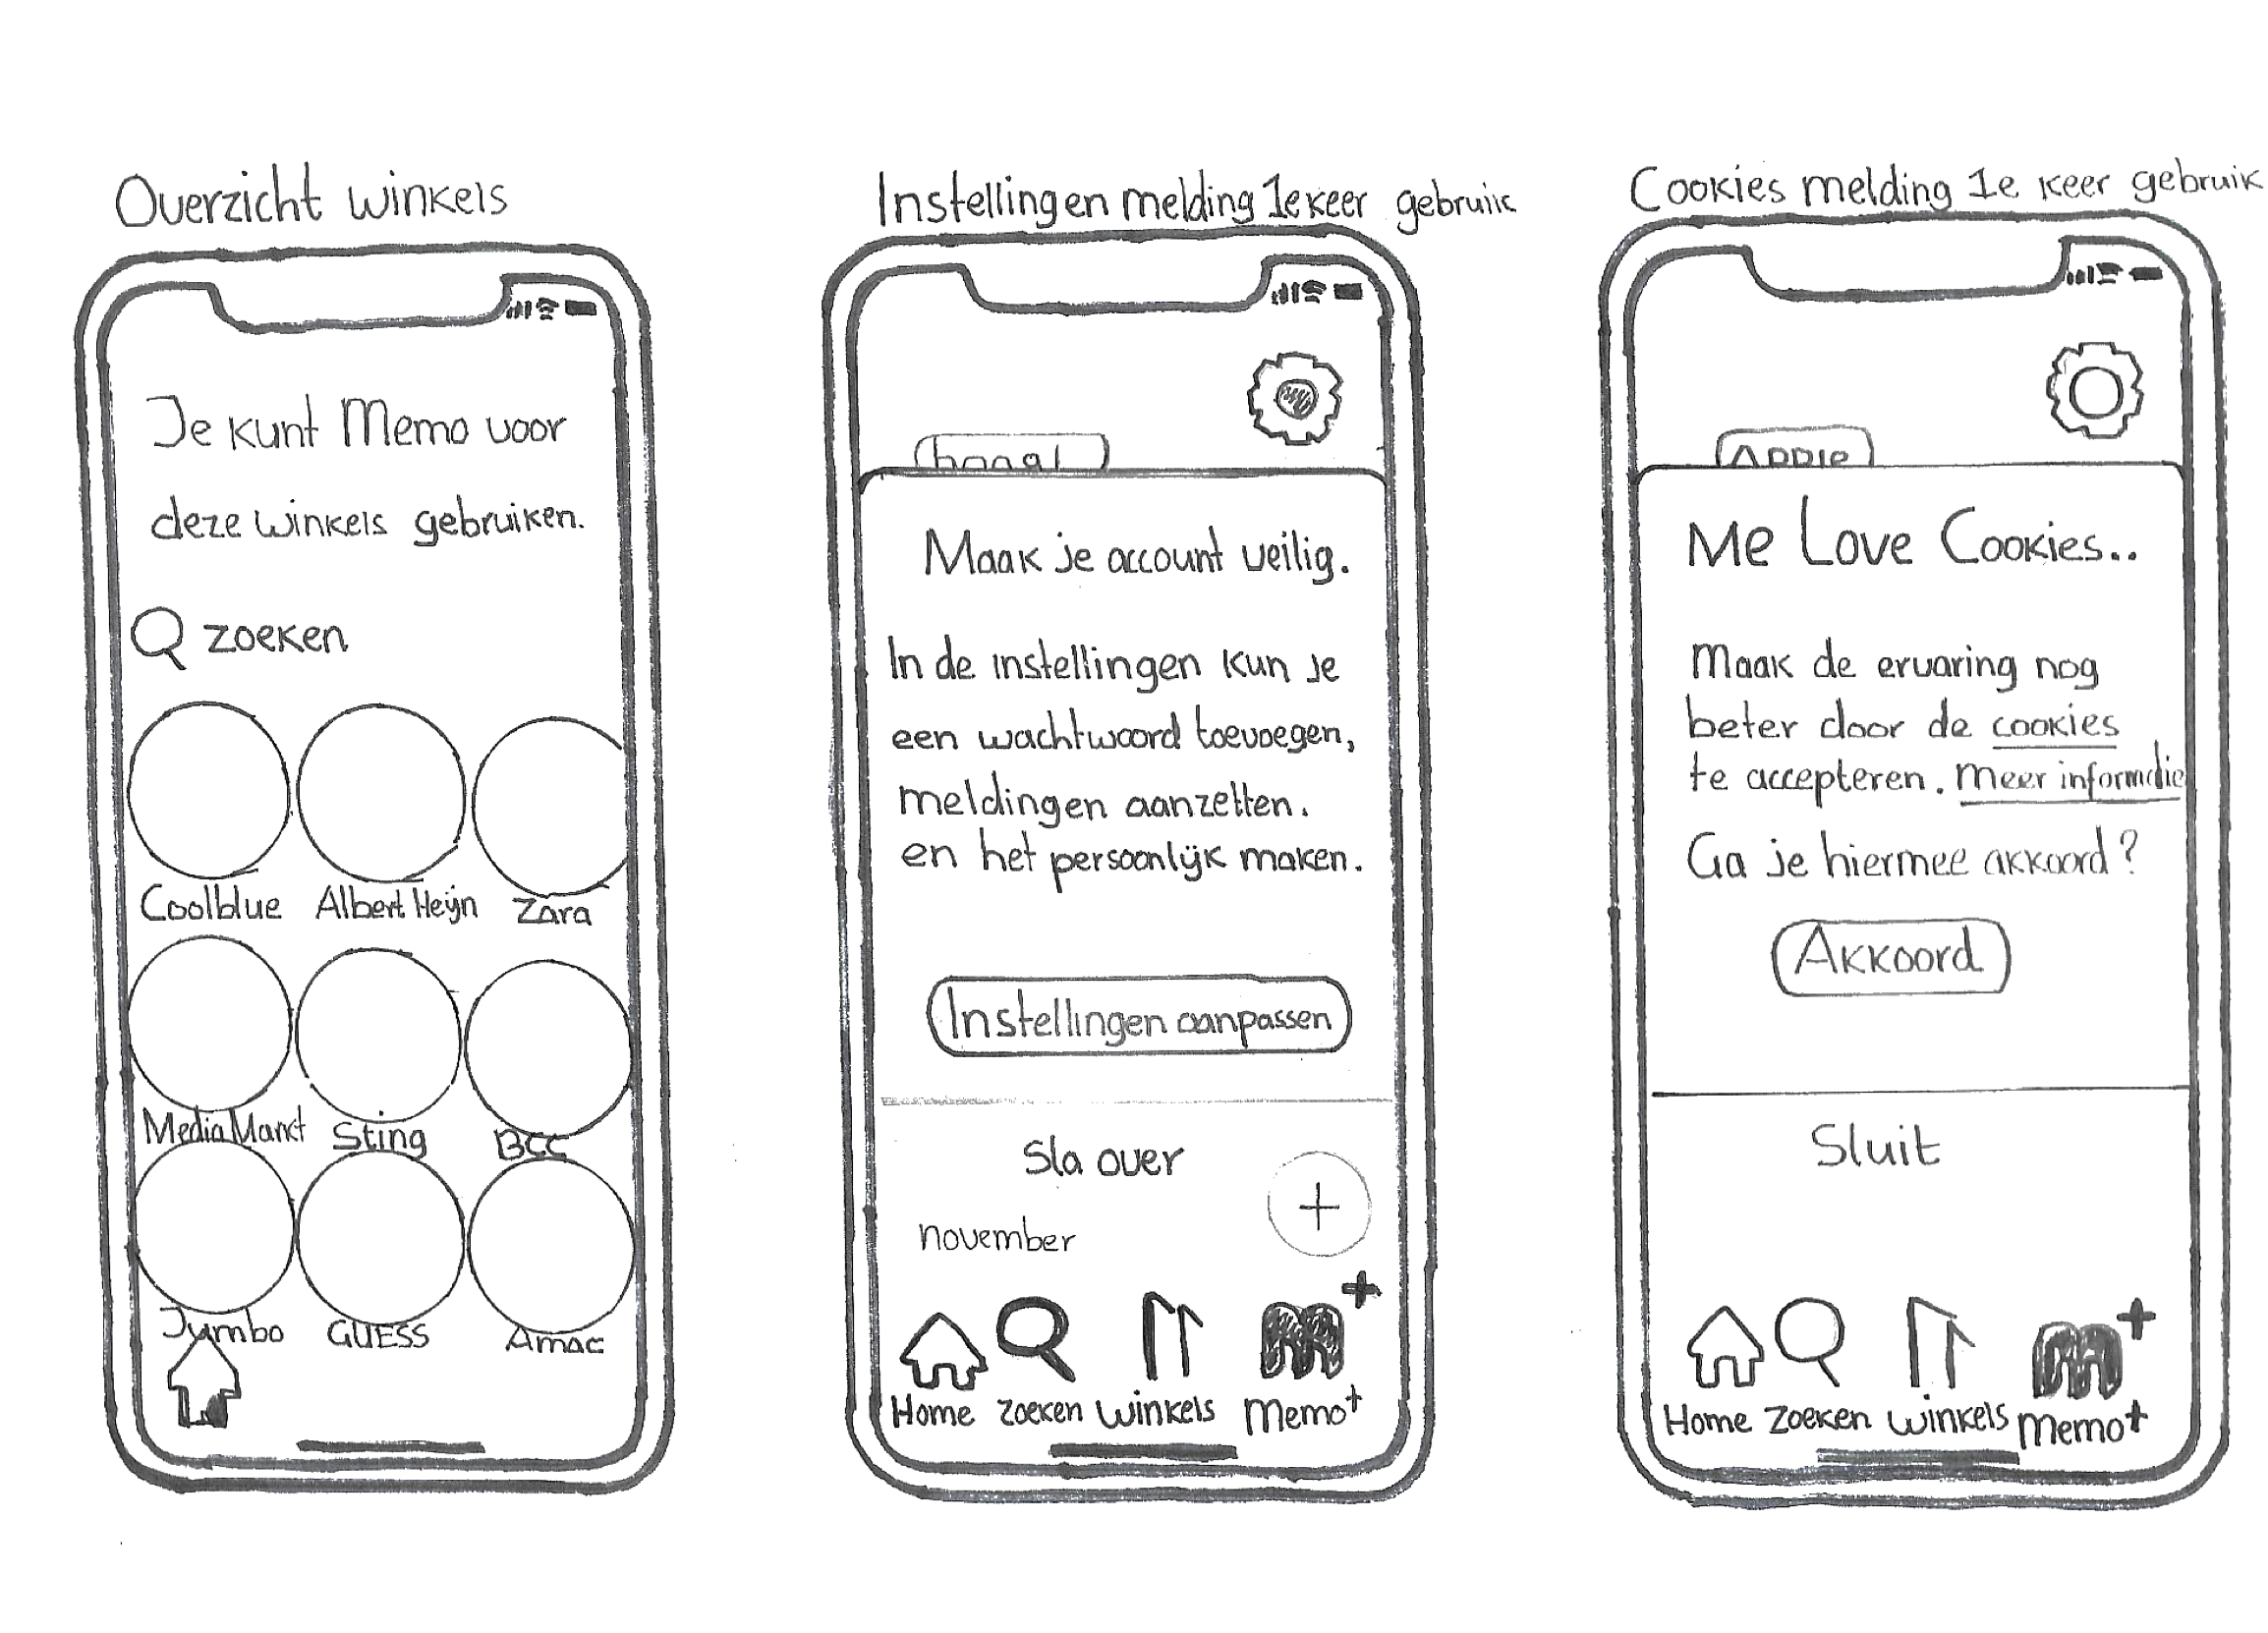 Overzicht winkels
Je kunt Memo voor
deze winkels gebruiken.
zoeken
Coolblue Albert Heijn Zara
Media Markt Sting BCC
Jumbo GUESS Amac
Instellingen melding 1e keer gebruik
Maak je account veilig.
In de instellingen kun je
een wachtwoord toevoegen,
meldingen aanzetten.
en het persoonlijk maken.
Instellingen aanpassen
Sla over
november
+
Home zoeken winkels Memo+
Cookies melding 1e keer gebruik
Apple
Me Love Cookies..
Maak de ervaring nog
beter door de cookies
te accepteren. Meer informatie
Ga je hiermee akkoord?
Akkoord
Sluit
Home zoeken winkels Memo+